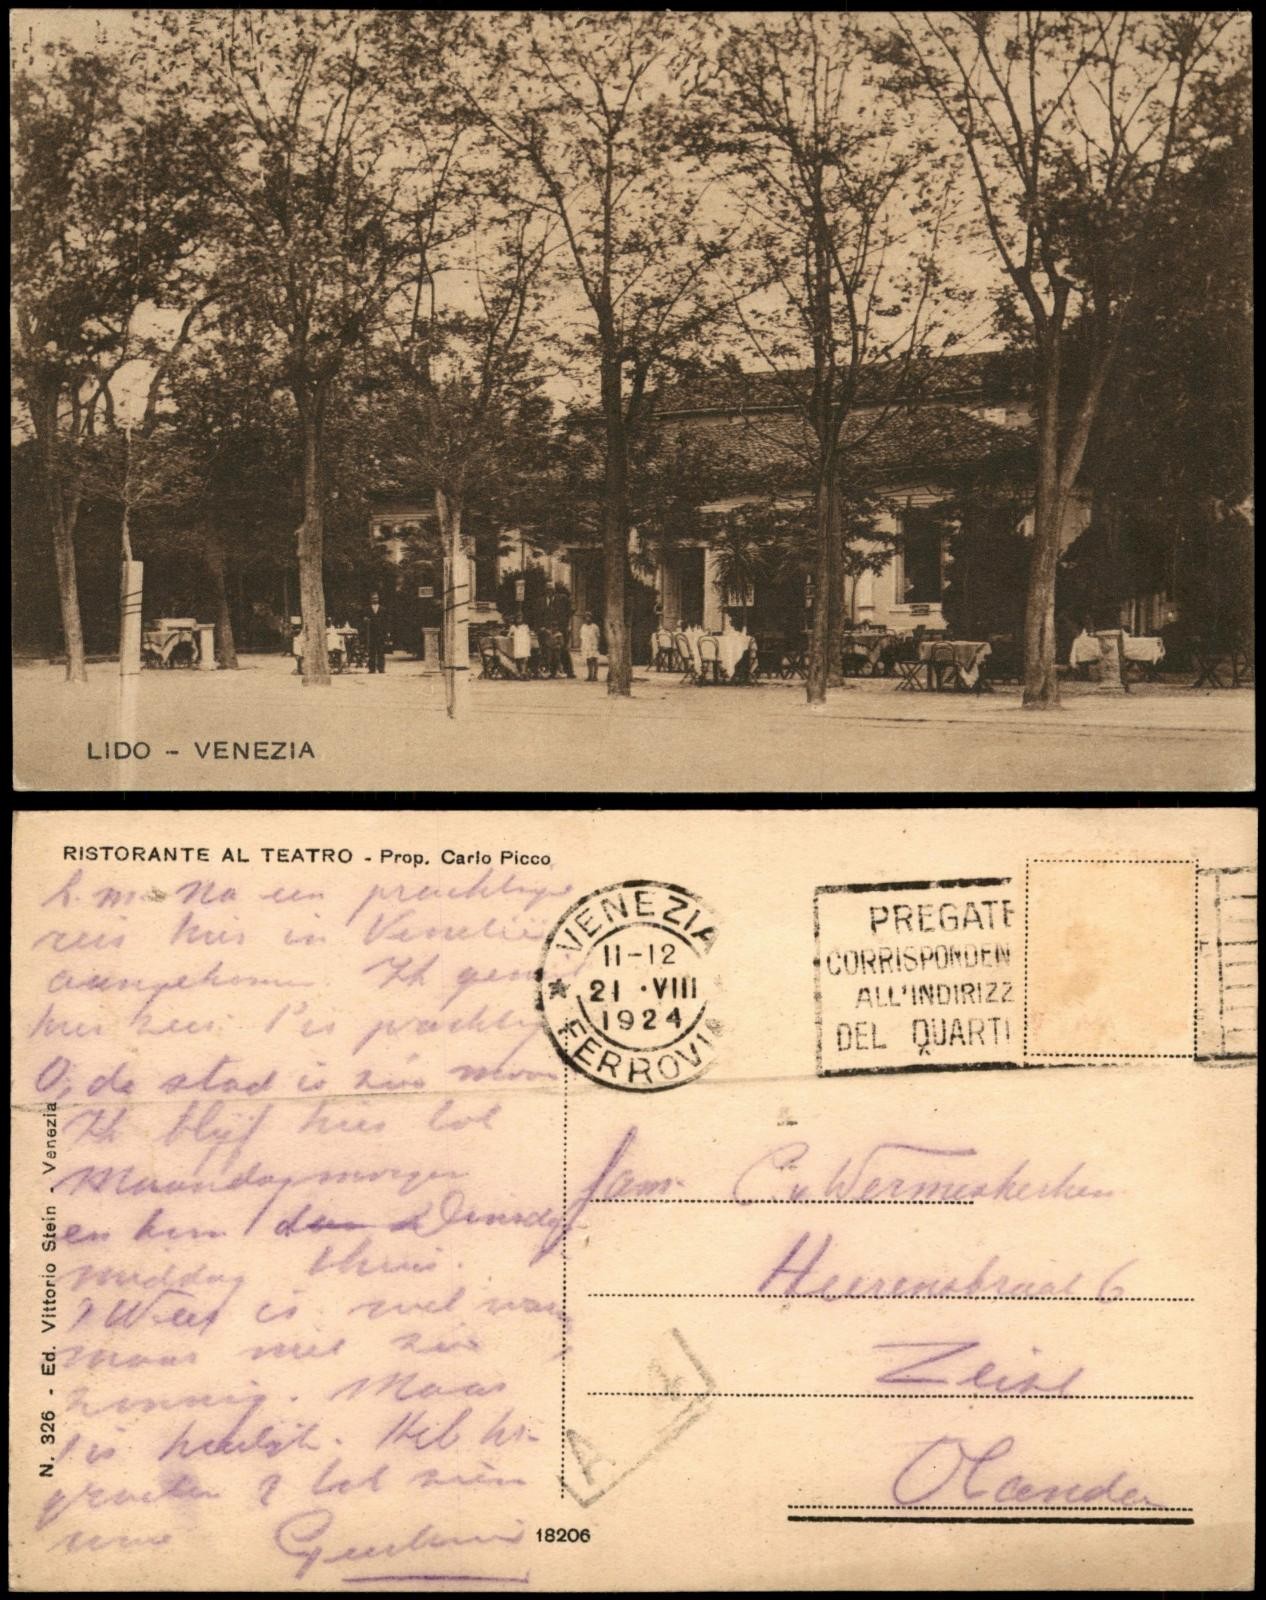 LIDO - VENEZIA
RISTORANTE AL TEATRO - Prop. Carlo Picco
N. 326 - Ed. Vittorio Stein - Venezia
Na een prachtige
reis hier in Venetië
aangekomen. Ik
hier zeer. 't is prachtig
O, de stad is zoo mooi
Ik blijf hier tot
Maandagmorgen
en kom Dinsdag
middag thuis.
't Weer is wel
maar niet zoo
zonnig. Maar
't is heerlijk. Heb
groeten & tot ziens
VENEZIA
11-12
21 · VIII
1924
FERROVI
PREGATE
CORRISPONDEN
ALL'INDIRIZZ
DEL QUARTI
Fam. C. v Wermeskerken
Heerenstraat 6
Zeist
Olanda
A
18206